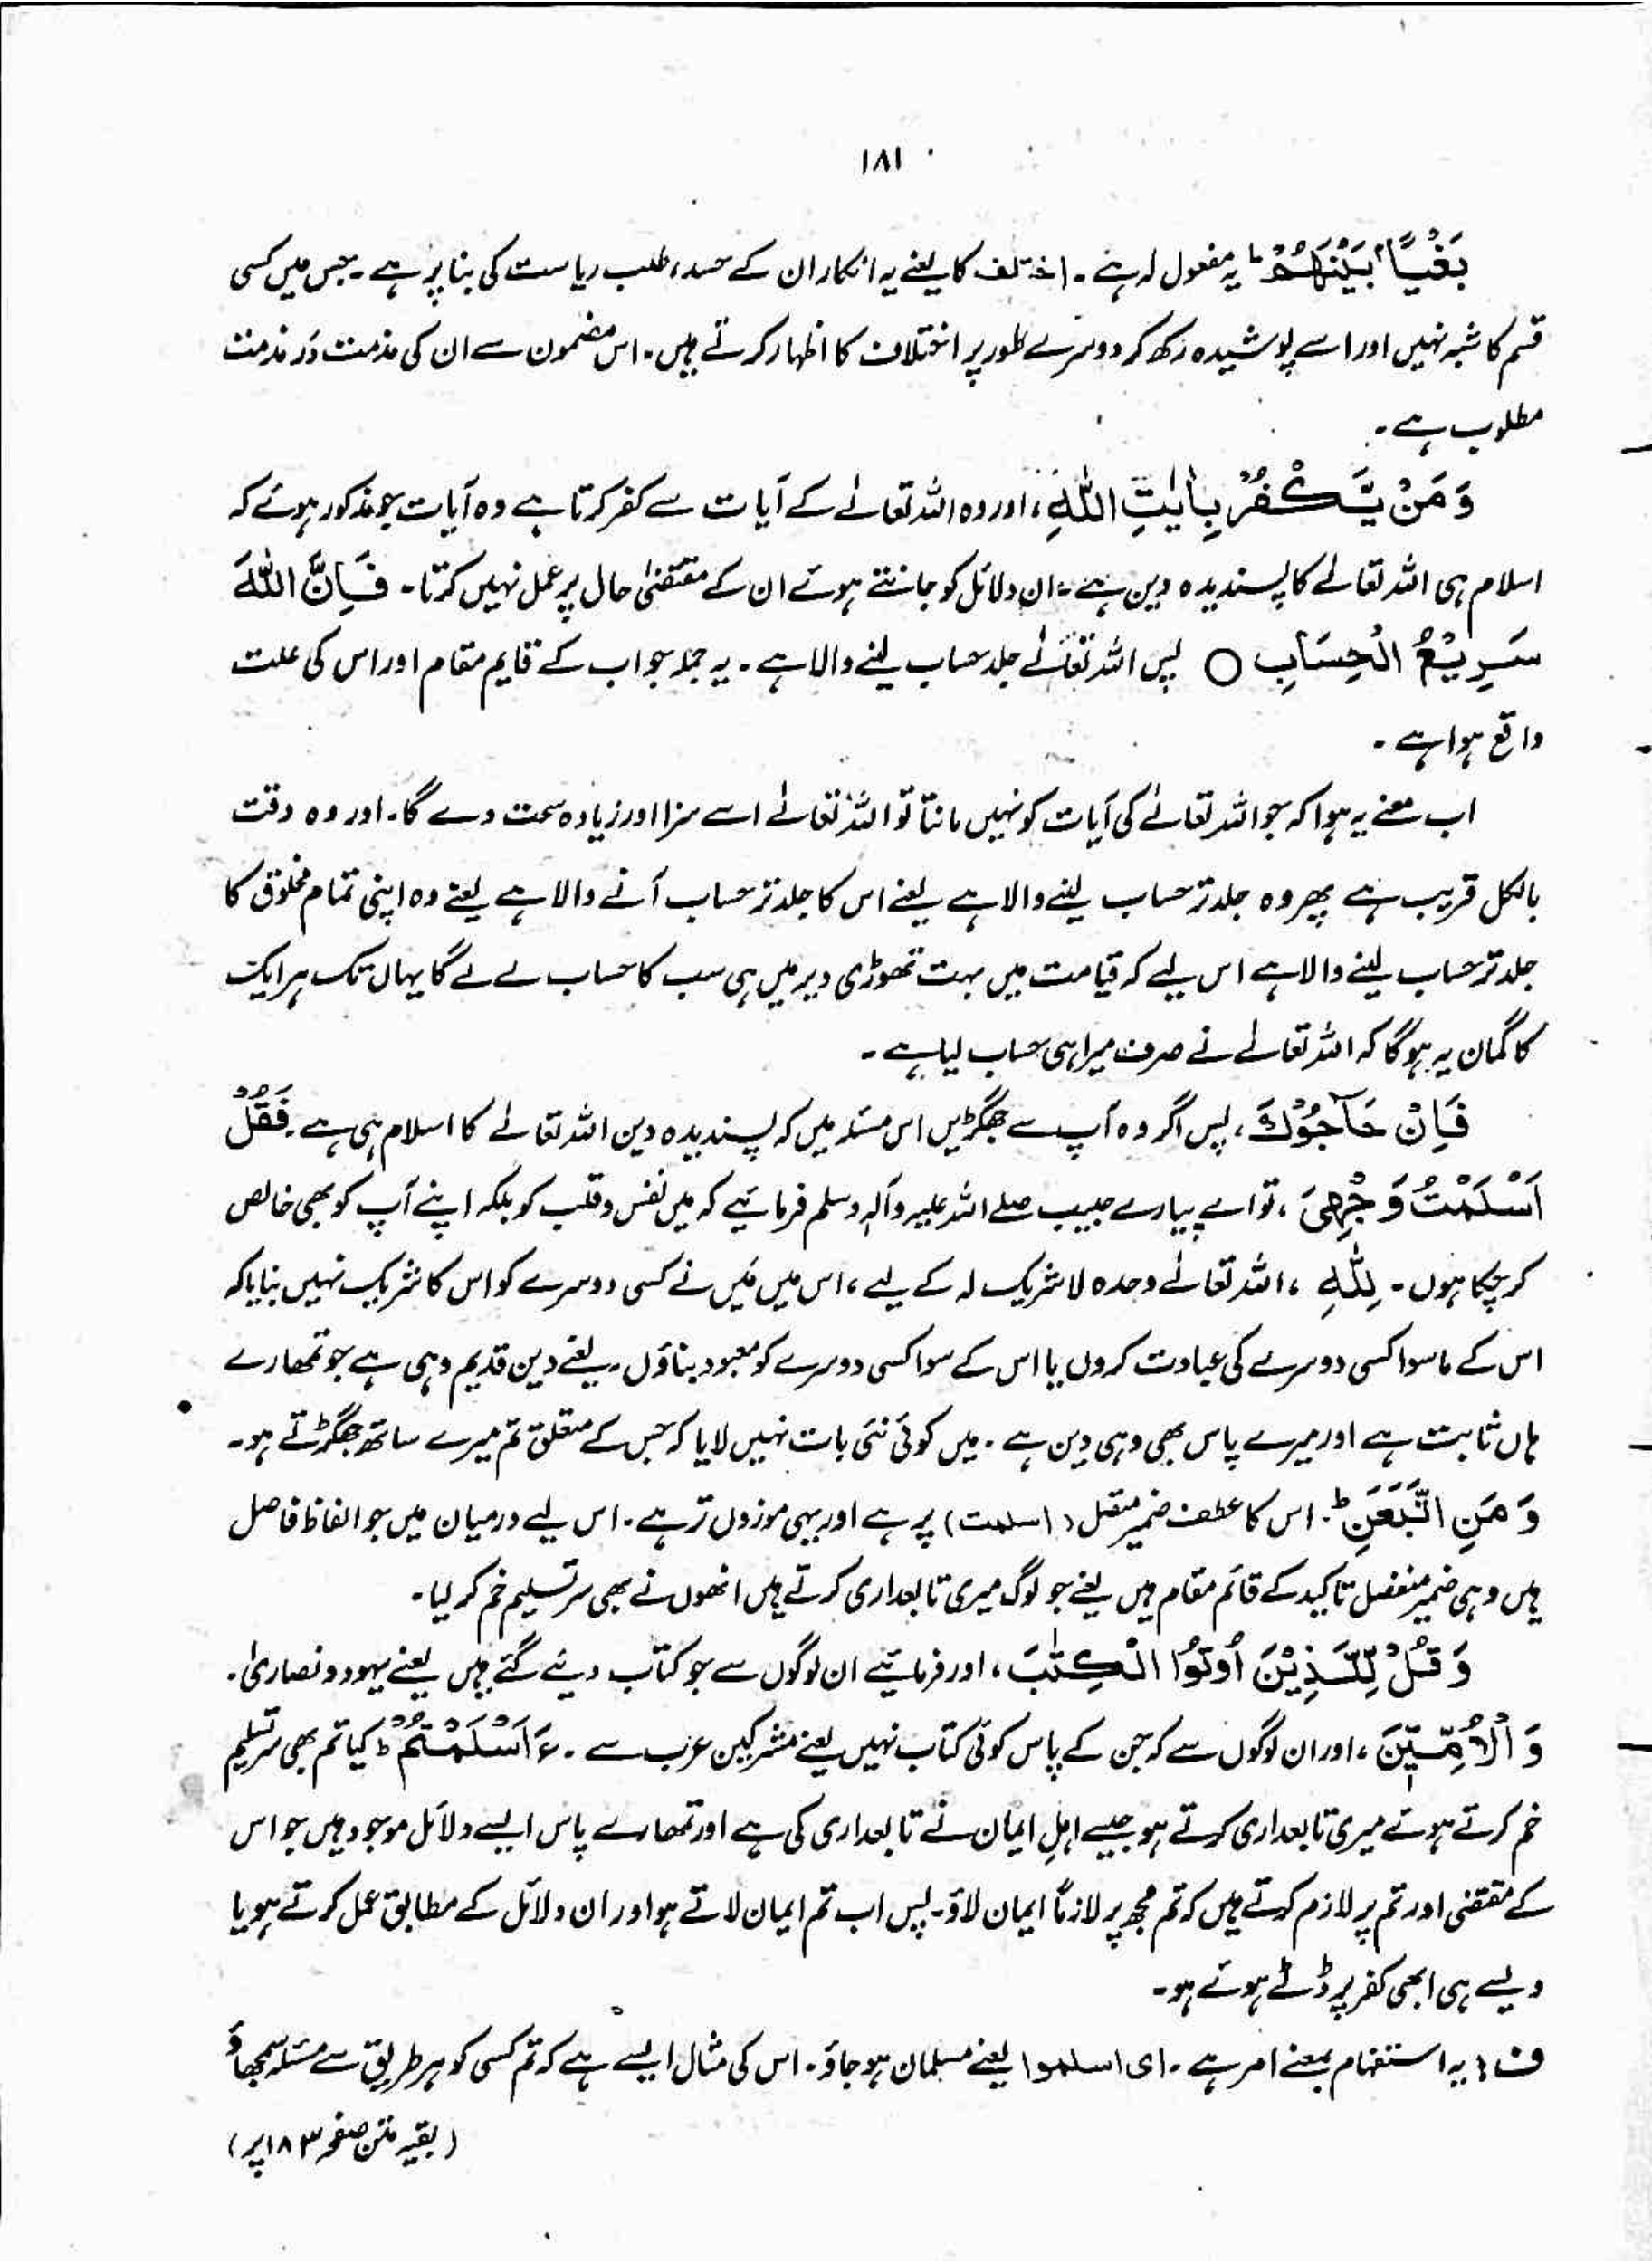 ۱۸۱
بَغْيًا بَيْنَهُمْ ؕ یہ مفعول لہ ہے ۔ اختلف کا یعنے یہ انکار ان کے حسد، طلب ریاست کی بنا پر ہے ۔ جس میں کسی
قسم کا شبہ نہیں اور اسے پوشیدہ رکھ کر دوسرے طور پر اختلاف کا اظہار کرتے ہیں ۔ اس مضمون سے ان کی مذمت دَر مذمت
مطلوب ہے ۔
وَ مَنْ يَّكْفُرْ بِاٰيٰتِ اللّٰهِ ، اور وہ اللہ تعالےٰ کے آیات سے کفر کرتا ہے وہ آیات جو مذکور ہوئے کہ
اسلام ہی اللہ تعالےٰ کا پسندیدہ دین ہے ۔ ان دلائل کو جانتے ہوئے ان کے مقتضیٰ حال پر عمل نہیں کرتا ۔ فَاِنَّ اللّٰهَ
سَرِيْعُ الْحِسَابِ ○ پس اللہ تعالےٰ جلد حساب لینے والا ہے ۔ یہ جملہ جواب کے قایم مقام اور اس کی علت
واقع ہوا ہے ۔
اب معنے یہ ہوا کہ جو اللہ تعالےٰ کی آیات کو نہیں مانتا تو اللہ تعالےٰ اسے سزا اور زیادہ سخت دے گا ۔ اور وہ وقت
بالکل قریب ہے پھر وہ جلد تر حساب لینے والا ہے یعنے اس کا جلد تر حساب آنے والا ہے یعنے وہ اپنی تمام مخلوق کا
جلد تر حساب لینے والا ہے اس لیے کہ قیامت میں بہت تھوڑی دیر میں ہی سب کا حساب لے لے گا یہاں تک ہر ایک
کا گمان یہ ہو گا کہ اللہ تعالےٰ نے صرف میرا ہی حساب لیا ہے ۔
فَاِنْ حَآجُّوْكَ ، پس اگر وہ آپ سے جھگڑیں اس مسئلہ میں کہ پسندیدہ دین اللہ تعالےٰ کا اسلام ہی ہے ۔ فَقُلْ
اَسْلَمْتُ وَجْهِيَ ، تو اے پیارے حبیب صلے اللہ علیہ وآلہٖ وسلم فرمائیے کہ میں نفس و قلب کو بلکہ اپنے آپ کو بھی خالص
کر چکا ہوں ۔ لِلّٰهِ ، اللہ تعالےٰ وحدہ لا شریک لہ کے لیے ، اس میں مَیں نے کسی دوسرے کو اس کا شریک نہیں بنایا کہ
اس کے ماسوا کسی دوسرے کی عبادت کروں یا اس کے سوا کسی دوسرے کو معبود بناؤں ۔ یعنے دین قدیم وہی ہے جو تمھارے
ہاں ثابت ہے اور میرے پاس بھی وہی دین ہے ۔ میں کوئی نئی بات نہیں لایا کہ جس کے متعلق تم میرے ساتھ جھگڑتے ہو ۔
وَ مَنِ اتَّبَعَنِ ؕ ۔ اس کا عطف ضمیر متصل (اسلمت) پر ہے اور یہی موزوں تر ہے ۔ اس لیے درمیان میں جو الفاظ فاصل
ہیں وہی ضمیر منفصل تاکید کے قائم مقام ہیں یعنے جو لوگ میری تابعداری کرتے ہیں انھوں نے بھی سر تسلیم خم کر لیا ۔
وَ قُلْ لِّلَّذِيْنَ اُوْتُوا الْكِتٰبَ ، اور فرمائیے ان لوگوں سے جو کتاب دیئے گئے ہیں یعنے یہود و نصاریٰ ۔
وَ الْاُمِّيّٖنَ ، اور ان لوگوں سے کہ جن کے پاس کوئی کتاب نہیں یعنے مشرکین عرب سے ۔ ءَاَسْلَمْتُمْ ؕ کیا تم بھی سر تسلیم
خم کرتے ہوئے میری تابعداری کرتے ہو جیسے اہلِ ایمان نے تابعداری کی ہے اور تمھارے پاس ایسے دلائل موجود ہیں جو اس
کے مقتضی اور تم پر لازم کرتے ہیں کہ تم مجھ پر لازماً ایمان لاؤ ۔ پس اب تم ایمان لاتے ہو اور ان دلائل کے مطابق عمل کرتے ہو یا
ویسے ہی ابھی کفر پر ڈٹے ہوئے ہو ۔
ف : یہ استفہام بمعنے امر ہے ۔ ای اسلموا یعنے مسلمان ہو جاؤ ۔ اس کی مثال ایسے ہے کہ تم کسی کو ہر طریق سے مسئلہ سمجھاؤ
( بقیہ متن صفحہ ۱۸۳ پر )